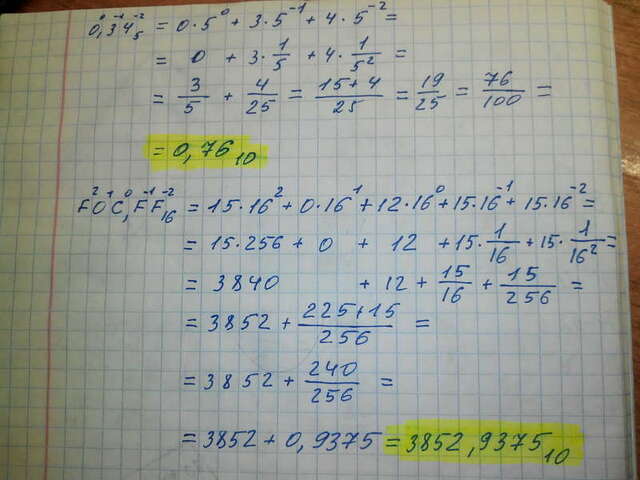 0,34₅ = 0·5⁰ + 3·5⁻¹ + 4·5⁻² =
= 0 + 3·1/5 + 4·1/5² =
= 3/5 + 4/25 = (15+4)/25 = 19/25 = 76/100 =
= 0,76₁₀
F²0¹C⁰,F⁻¹F⁻²₁₆ = 15·16² + 0·16¹ + 12·16⁰ + 15·16⁻¹ + 15·16⁻² =
= 15·256 + 0 + 12 + 15·1/16 + 15·1/16² =
= 3840 + 12 + 15/16 + 15/256 =
= 3852 + (225+15)/256 =
= 3852 + 240/256 =
= 3852 + 0,9375 = 3852,9375₁₀